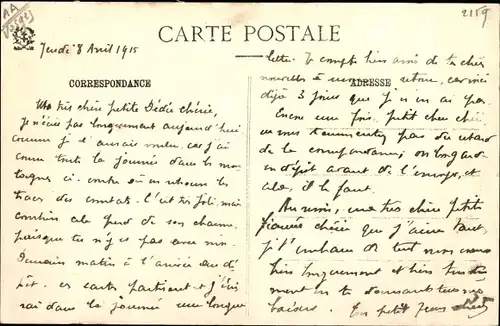 2119
CARTE POSTALE
Jeudi 8 Avril 1915
CORRESPONDANCE
Ma très chère petite Dédée chérie,
Je n'écris pas longuement aujourd'hui
comme je l'aurais voulu, car j'ai
couru toute la journée dans les mon
tagnes ci-contre où on retrouve les
traces des combats. C'est très joli, mais
combien cela perd de son charme
puisque tu n'y es pas avec moi.
Demain matin à l'arrivée au dé
pôt, ces cartes partiront et j'écri
rai dans la journée une longue
lettre. Je compte bien avoir de tes chères
nouvelles à mon retour, car voici
ADRESSE
déjà 3 jours que je n'en ai pas.
Encore une fois, petit cher chéri,
ne vous tourmentez pas du retard
de la correspondance, on la garde
en dépôt avant de l'envoyer, et
cela, il le faut.
Au revoir, ma très chère petite
fiancée chérie que j'aime tant,
je t'embrasse de tout mon cœur
bien longuement et bien tendre
ment en te donnant tous mes
baisers. Ton petit